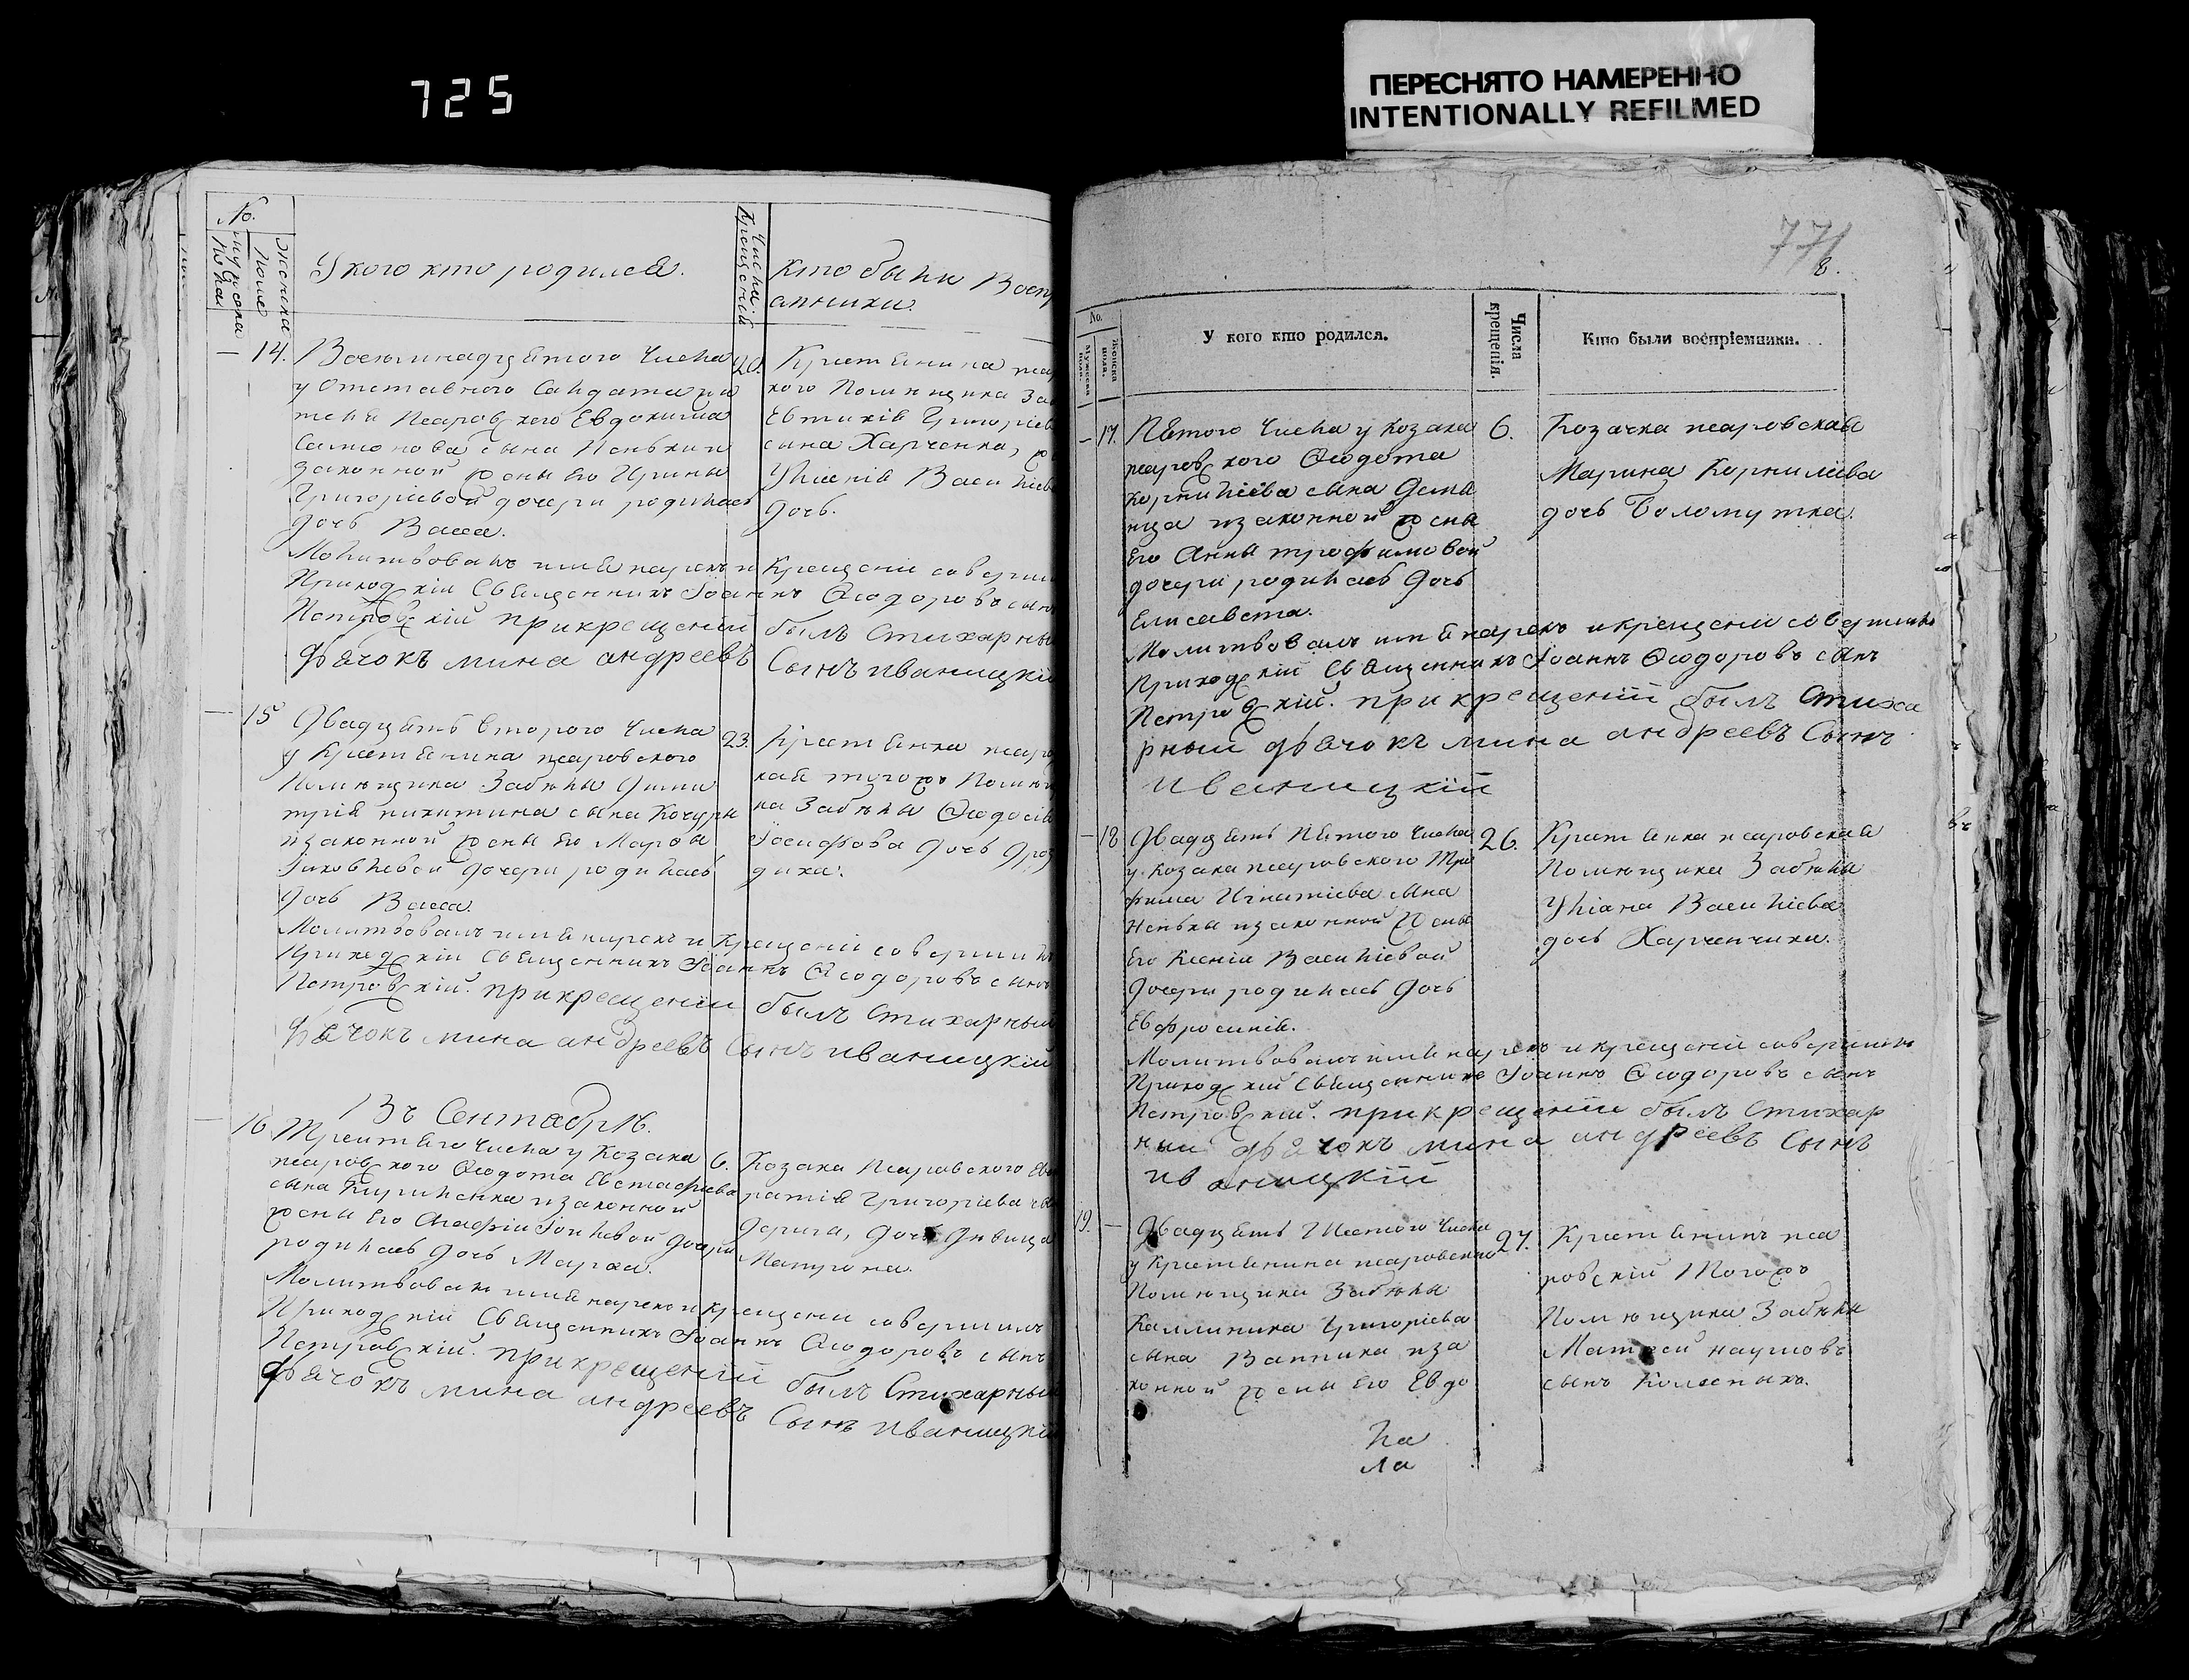 725
ПЕРЕСНЯТО НАМЕРЕННО
INTENTIONALLY REFILMED
No.
Мужеска пола
Женска пола
У кого кто родился.
Числа крещений
Кто были Восп
аники.
14.
Восемнадцятого Числа
у Отставного Салдата жи
теля псаров̾ского Евдокима
сына Пенькии
законной жены Его Ирины
Григоріевой дочери родилась
дочь Васса.
20.
Крестянина
кого Помѣщика
Григоріев
сина Харченка,
Василіев
дочь.
Молитвовалъ имя нарекъ и Крещеніе соверши
Приход̾скій Священникъ Іоаннъ Ѳеодоровъ сынъ
Петров̾скій при крещеніи былъ Стихарны
дьячокъ мина андреевъ Сынъ иваницкій
15
Двадцять второго Числа
у Крестянина псаровского
Помѣщика Забѣлы Дими
трія никитина сына Кочуры
изаконной жены Его Марфы
Іяковлевой дочери родилась
дочь Васса.
23.
Крестянка псаро
кая тогожъ Помѣщ
ка Забѣлы Ѳеодосія
Іосифова дочь Дроз
диха.
Молитвовалъ имя нарекъ и Крещеніе совершилъ
Приход̾скій Священникъ Іоаннъ Ѳеодоровъ сынъ
Петров̾скій. при крещеніи былъ Стихарный
дьячокъ мина андреевъ Сынъ иваницкій
Въ Сентябрѣ.
16
Третяго Числа у Козака
псаров̾ского Ѳеодота Евстафіева
сына Кириленка изаконной
жены Его Агафіи дочери
родилась дочь Марѳа.
6.
Козака Псаровского
Григоріева
дочь Дѣвица
Матрона.
Молитвовалъ имя нарекъ и крещеніе совершилъ
Приход̾скій Священникъ Іоаннъ Ѳеодоровъ сынъ
Петров̾скій. при крещеніи былъ Стихарный
дьячокъ мина андреевъ Сынъ иваницкій
771
8.
No.
Мужеска пола.
Женска пола.
У кого кто родился.
Числа крещенія.
Кто были воспріемники.
17.
Пятого Числа у козака
псаров̾ского Ѳеодота
Корниліева сына Деме
нца изаконной жены
Его Анны трофимовой
дочери родилась дочь
Елисавета.
6.
Козачка псаровская
Марина Корниліева
дочь Боломутка.
Молитвовалъ имя нарекъ и крещеніе совершилъ
Приход̾скій Священникъ Іоаннъ Ѳеодоровъ сынъ
Петров̾скій. при крещеніи былъ Стиха
рный дьячокъ мина андреевъ Сынъ
иваницкій
18
Двадцять Пятого Числа
у Козака псаровского Тро
фима Игнатіева сына
Неньки изаконной жены
Его Ксеніи Василіевой
дочери родилась дочь
Евфросинія.
26.
Крестянка псаровская
Помѣщика Забѣлы
Уліана Василіева
дочь Харченчиха.
Молитвовалъ имя нарекъ и крещеніе совершилъ
Приход̾скій Священникъ Іоаннъ Ѳеодоровъ сынъ
Петров̾скій. при крещеніи былъ стихар
ный дьячокъ мина андреевъ Сынъ
иваницкій
19.
Двадцять Шестого Числа
у Крестянина псаровского
Помѣщика Забѣлы
Каллиника Григоріева
сына Ванника иза
конной жены Его Евдо
27.
Крестянинъ пса
ров̾скій Тогожъ
Помѣщика Забѣлы
Матвей наумовъ
сынъ Колесникъ.